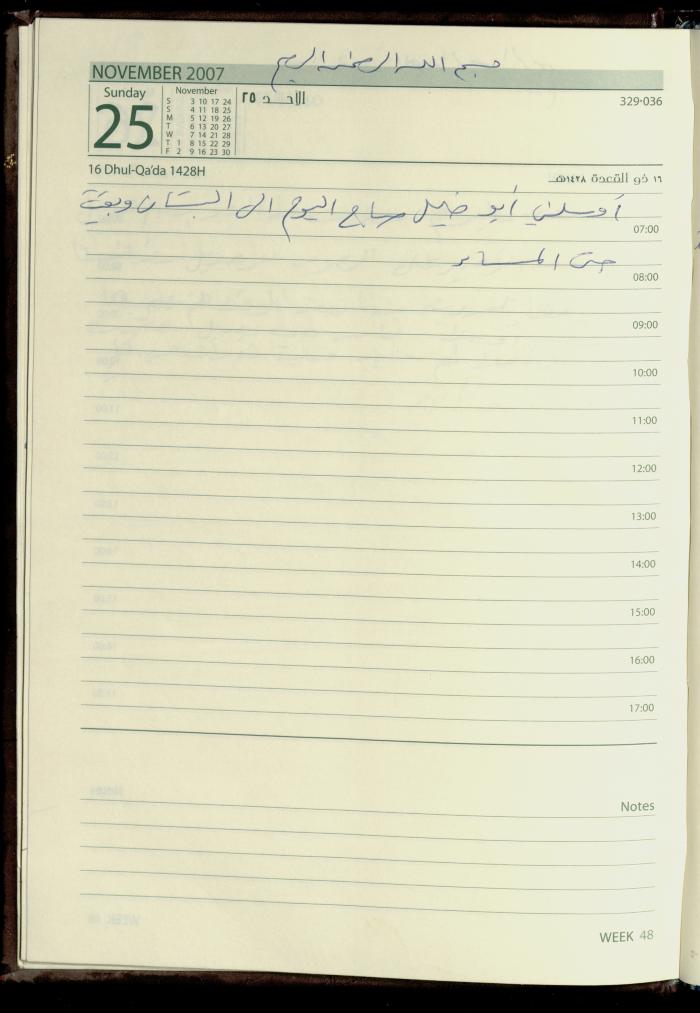 بسم الله الرحمن الرحيم
NOVEMBER 2007
Sunday
25
November
S 3 10 17 24
S 4 11 18 25
M 5 12 19 26
T 6 13 20 27
W 7 14 21 28
T 1 8 15 22 29
F 2 9 16 23 30
الأحد ٢٥
329-036
16 Dhul-Qa'da 1428H
١٦ ذو القعدة ١٤٢٨هـ
أوصلني أبو خليل صباح اليوم الى البستان وبقيت
07:00
حتى المساء
08:00
09:00
10:00
11:00
12:00
13:00
14:00
15:00
16:00
17:00
Notes
WEEK 48